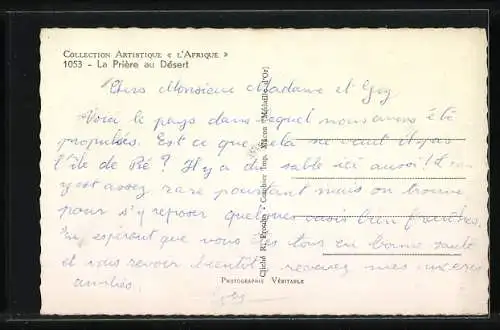 COLLECTION ARTISTIQUE « L'AFRIQUE »
1053 - La Prière au Désert
Chers Monsieur Madame et Guy
Voici le pays dans lequel nous avons été
propulsés. Est ce que cela ne vaut il pas
l'île de Ré ? Il y a du sable ici aussi ! L'eau
y est assez rare pourtant mais on trouve
pour s'y reposer quelques oasis bien fraîches.
En espérant que vous êtes tous en bonne santé
et vous revoir bientôt, recevez mes sincères
amitiés.
Cliché R. Prouho - Combier Imp. Macon (Médaille d'Or)
PHOTOGRAPHIE VÉRITABLE